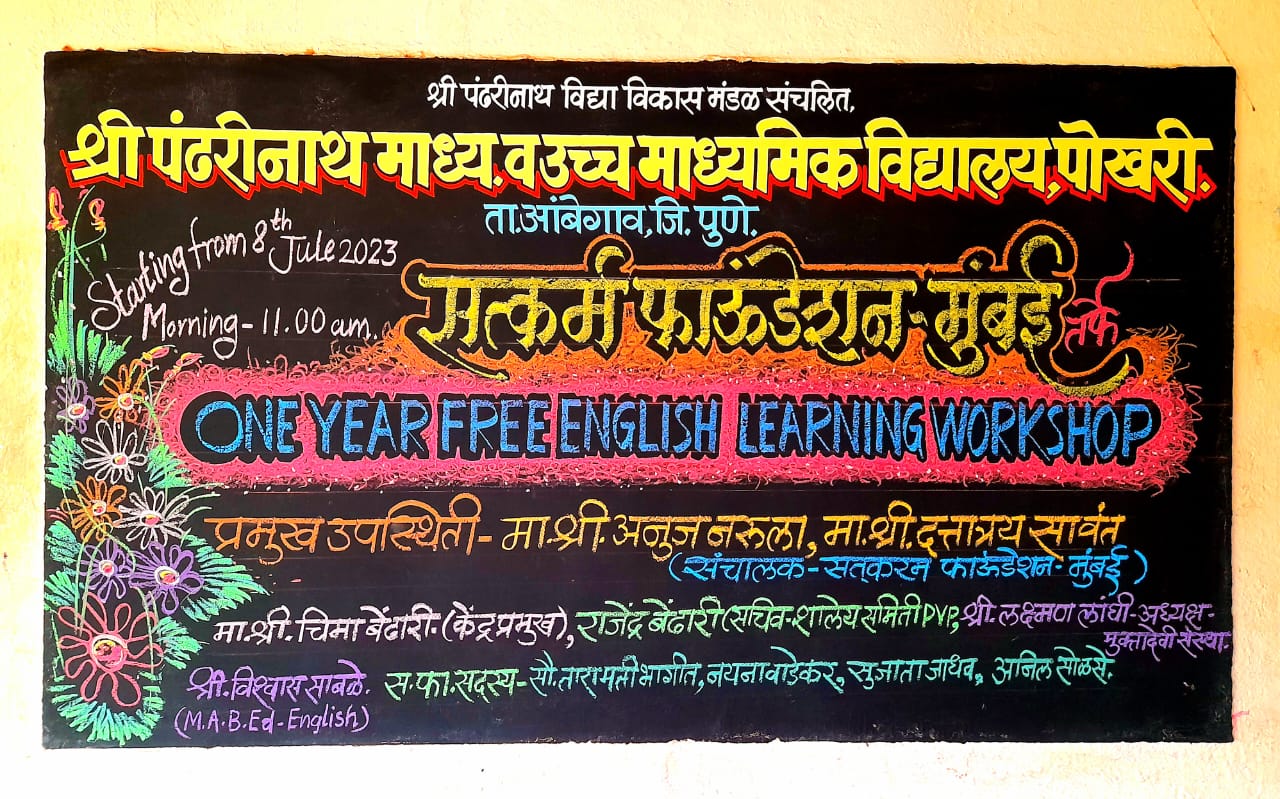 श्री पंढरीनाथ विद्या विकास मंडळ संचलित,
श्री पंढरीनाथ माध्य. व उच्च माध्यमिक विद्यालय, पोखरी.
ता. आंबेगाव, जि. पुणे.
Starting from 8th Jule 2023
Morning - 11.00 am.
सत्कर्म फाऊंडेशन - मुंबई तर्फे
ONE YEAR FREE ENGLISH LEARNING WORKSHOP
प्रमुख उपस्थिती - मा. श्री. अनुज नरुला, मा. श्री. दत्तात्रय सावंत
(संचालक - सतकरन फाऊंडेशन - मुंबई)
मा. श्री. चिमा बेंढारी - (केंद्र प्रमुख), राजेंद्र बेंढारी (सचिव - शालेय समिती PVP, श्री. लक्ष्मण लांघी - अध्यक्ष -
मुक्तादेवी संस्था.
श्री. विश्वास साबळे. स. फा. सदस्य - सौ. तारामती भागीत, नयना वाडेकर, सुजाता जाधव, अनिल सोळसे.
(M.A.B.Ed - English)